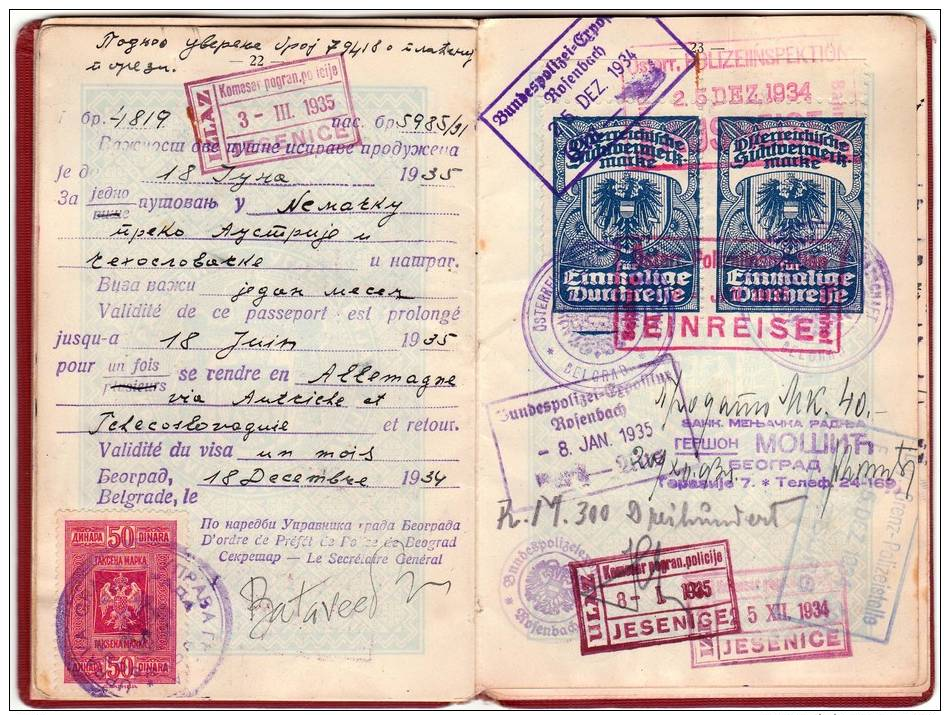 Поднео уверење број 79418 о плаћену
порези.
22
ULAZ
Komesar pogran. policije
3 - III. 1935
JESENICE
бр. 4819 пас. бр. 5985/31
Важност ове путне исправе продужена
је до 18 Јуна 1935
За једно
више
путовањ у Немачку
преко Аустрије и
Чехословачке и натраг.
Виза важи један месец
Validité de ce passeport est prolongé
jusqu-a 18 Juin 1935
pour un fois
plusieurs
se rendre en Allemagne
via Autriche et
Tchecoslovaquie et retour.
Validité du visa un mois
Београд, 18 Decembre 1934
Belgrade, le
По наредби Управника града Београда
D'ordre de Préfet de Police de Beograd
Секрешар — Le Secrétaire Général
50 50
ДИНАРА DINARA
ТАКСЕНА МАРКА
TAKSENA MARKA
ДИНАРА 50 DINARA
23
Bundespolizei-Expositur
Rosenbach
25. DEZ. 1934
Österr. POLIZEIINSPEKTION
25. DEZ 1934
Österreichische
Sichtvermerk-
marke
für
Einmalige
Durchreise
Österreichische
Sichtvermerk-
marke
für
Einmalige
Durchreise
EINREISE
BELGRAD
BELGRAD
Bundespolizei-Expositur
Rosenbach
- 8. JAN. 1935
Продато МК. 40.-
БАНК. МЕЊАЧКА РАДЊА
ГЕРШОН МОШИЋ
БЕОГРАД
Теразије 7. * Телеф. 24-169
R.M. 300 Dreihundert
Bundespolizei
Rosenbach
ULAZ
Komesar pogran. policije
8 - I. 1935
JESENICE
5 XII. 1934
JESENICE
Grenz-Polizeistelle